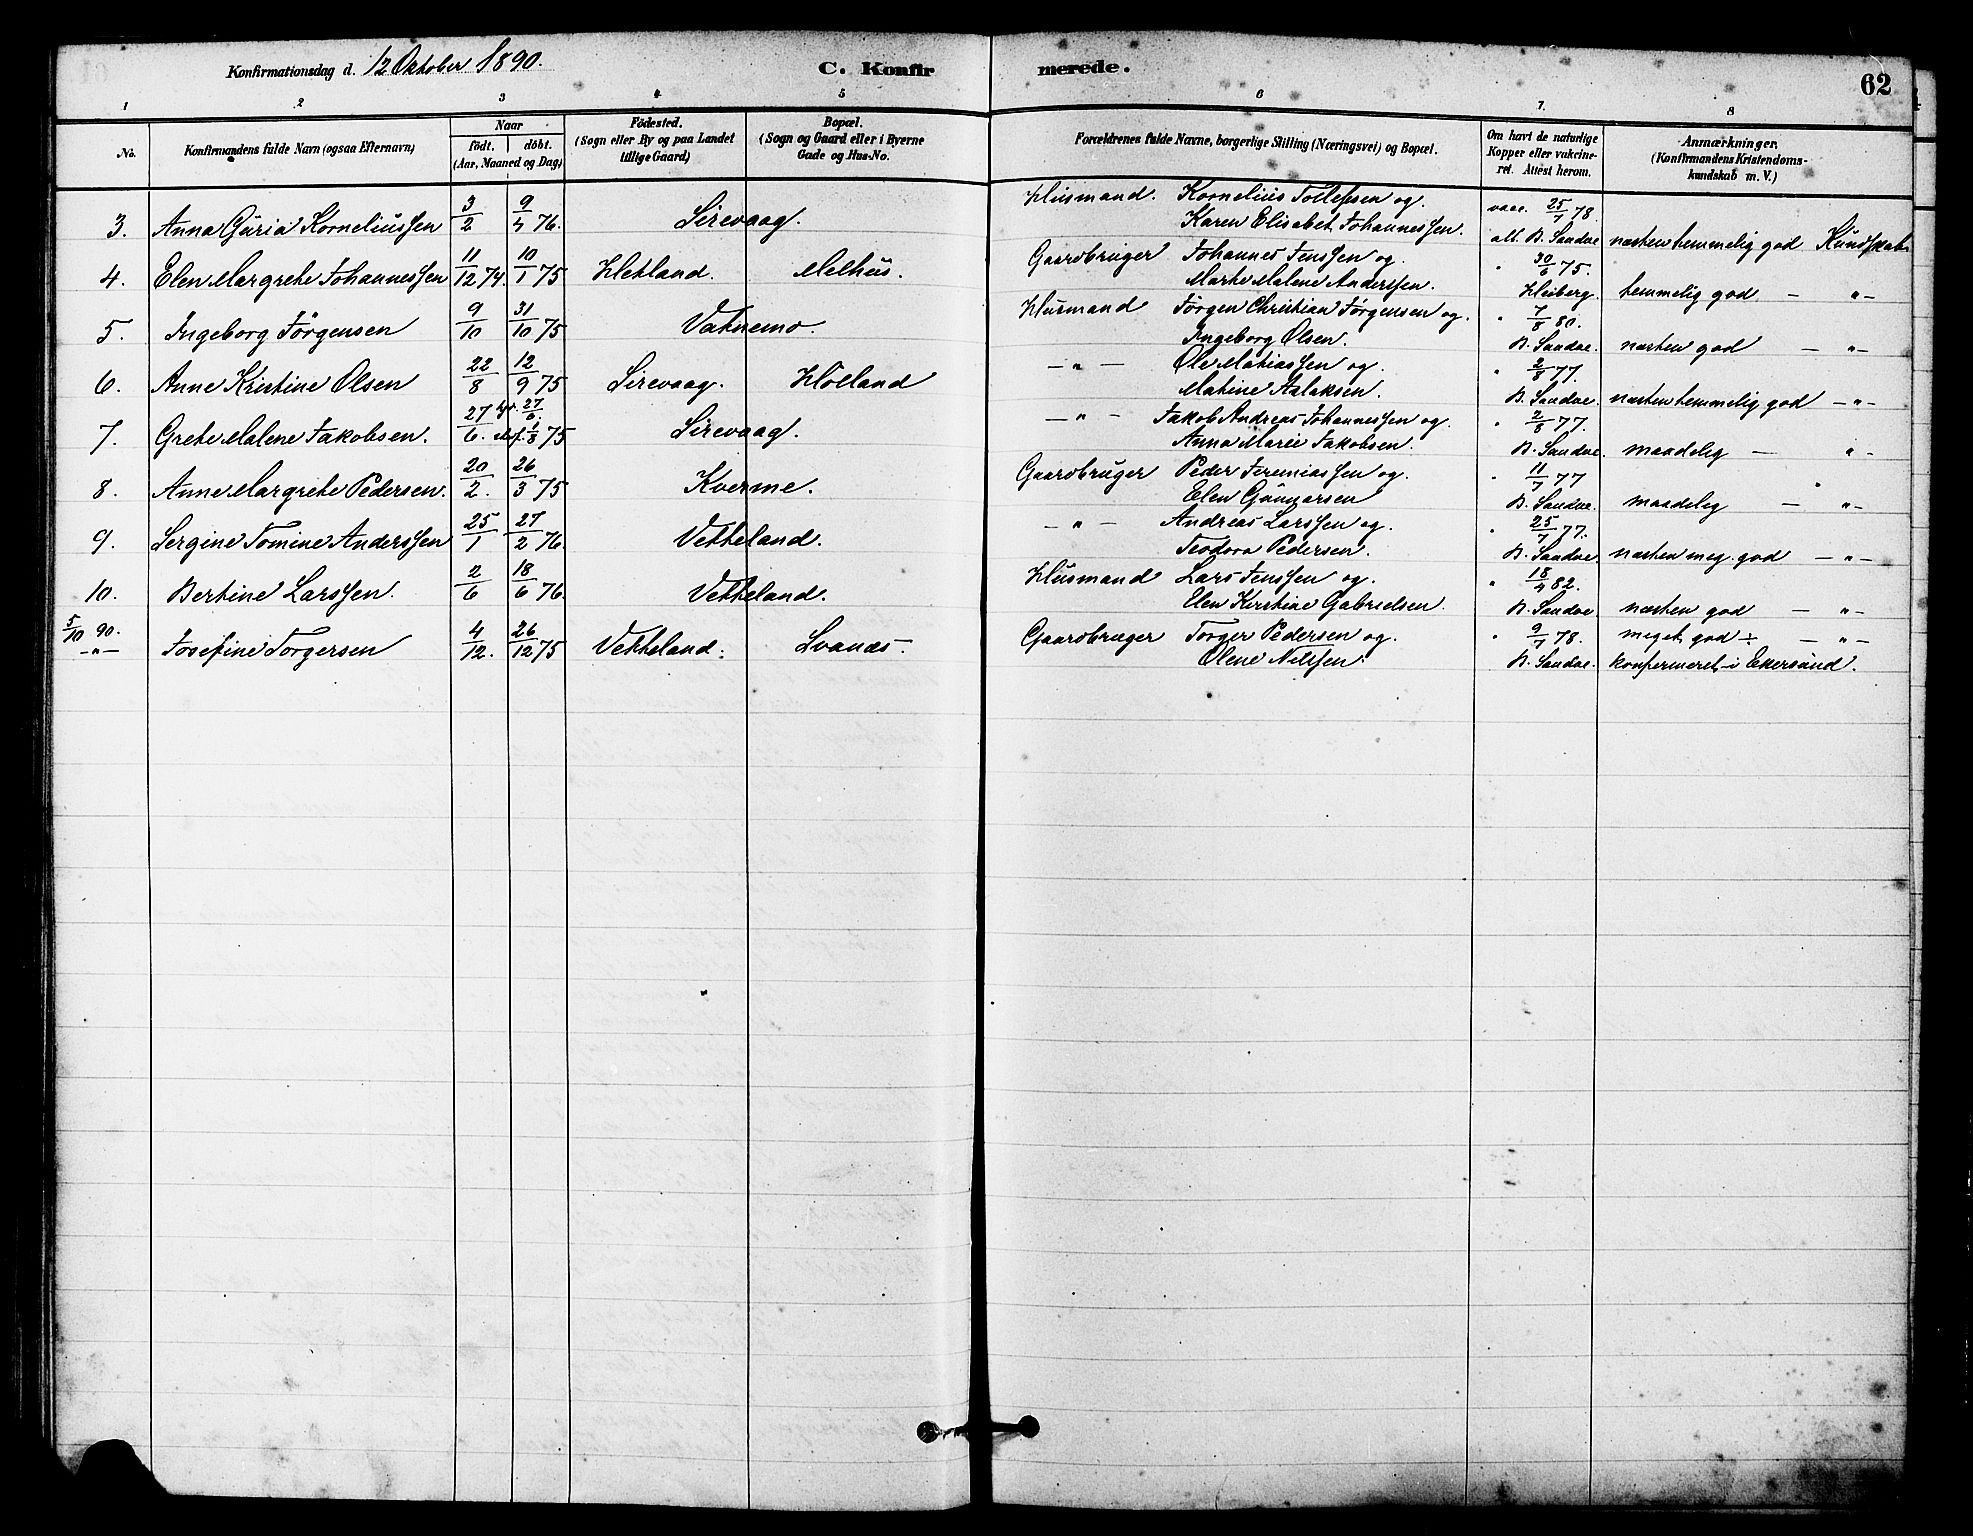 Konfirmationsdag d. 12 Oktober 1890. C. Konfirmerede. 62
1 2 3 4 5 6 7. 8
No. Konfirmandens fulde Navn (ogsaa Efternavn) Naar födt. döbt. (Aar, Maaned og Dag) Födested. (Sogn eller By og paa Landet tillige Gaard) Bopæl. (Sogn og Gaard eller i Byerne Gade og Hus-No. Forældrenes fulde Navne, borgerlige Stilling (Næringsvei) og Bopæl. Om havt de naturlige Kopper eller vakcineret. Attest herom. Anmærkninger. (Konfirmandens Kristendomskundskab m. V.)
3. Anna Guria Korneliussen 3/2 9/4 76. Sirevaag. Husmand. Kornelius Tollefsen og vacc. 25/7 78.
Karen Elisabet Johannessen. att. B. Sandve næsten temmelig god Kundskab
4. Elen Margrete Johannessen 11/12 74. 10/1 75 Hetland. Melhus. Gaardbruger Johannes Jenssen og " 30/6 75.
Marte Malene Anderssen. Heiberg. temmelig god — " —
5. Ingeborg Jörgensen 9/10 31/10 75 Vatnemo. Husmand Jörgen Christian Jörgensen og. " 7/8 80.
Ingeborg Olsen. B. Sandve. næsten god — " —
6. Anne Kristine Olsen 22/8 12/9 75 Sirevaag. Holland — " — Ole Matiassen og. " 2/8 77.
Matine Aslaksen. B. Sandve. næsten temmelig god — " —
7. Grete Malene Jakobsen. 27/6. hj. 27/6. st. f. 1/8 75 Sirevaag. — " — Jakob Andreas Johannessen og. " 2/8 77.
Anna Marie Jakobsen. B. Sandve. maadelig — " —
8. Anne Margrete Pedersen. 20/2. 26/3 75 Kverme. Gaardbruger Peder Jeremiassen og. " 11/7 77
Elen Gunnarsen B. Sandve. maadelig — " —
9. Sergine Tomine Anderssen 25/1 27/2 76. Vetteland. — " — Andreas Larssen og. " 25/7 77.
Teodora Pedersen. B. Sandve. næsten meg. god — " —
10. Bertine Larssen. 2/6 18/6 76. Vetteland. Husmand Lars Jenssen og. " 18/4 82.
Elen Kirstine Gabrielsen. B. Sandve. næsten god — " —
5/10 90. — " — Josefine Torgersen 4/12. 26/12 75 Vetteland. Svanæs. Gaardbruger Torger Pedersen og. " 9/7 78. meget god ÷ — " —
Olene Nilssen. B. Sandve. konfirmeret i Ekersund.